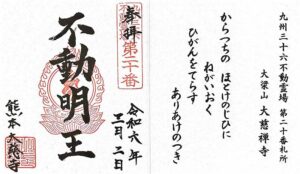 九州三十六不動霊場 第二十番札所
大梁山 大慈禅寺
からつちの ほとけのじひに
ねがいおく
ひがんをてらす
ありあけのつき
奉拝
第二十番
令和六年
三月二日
不動明王
熊本大慈寺